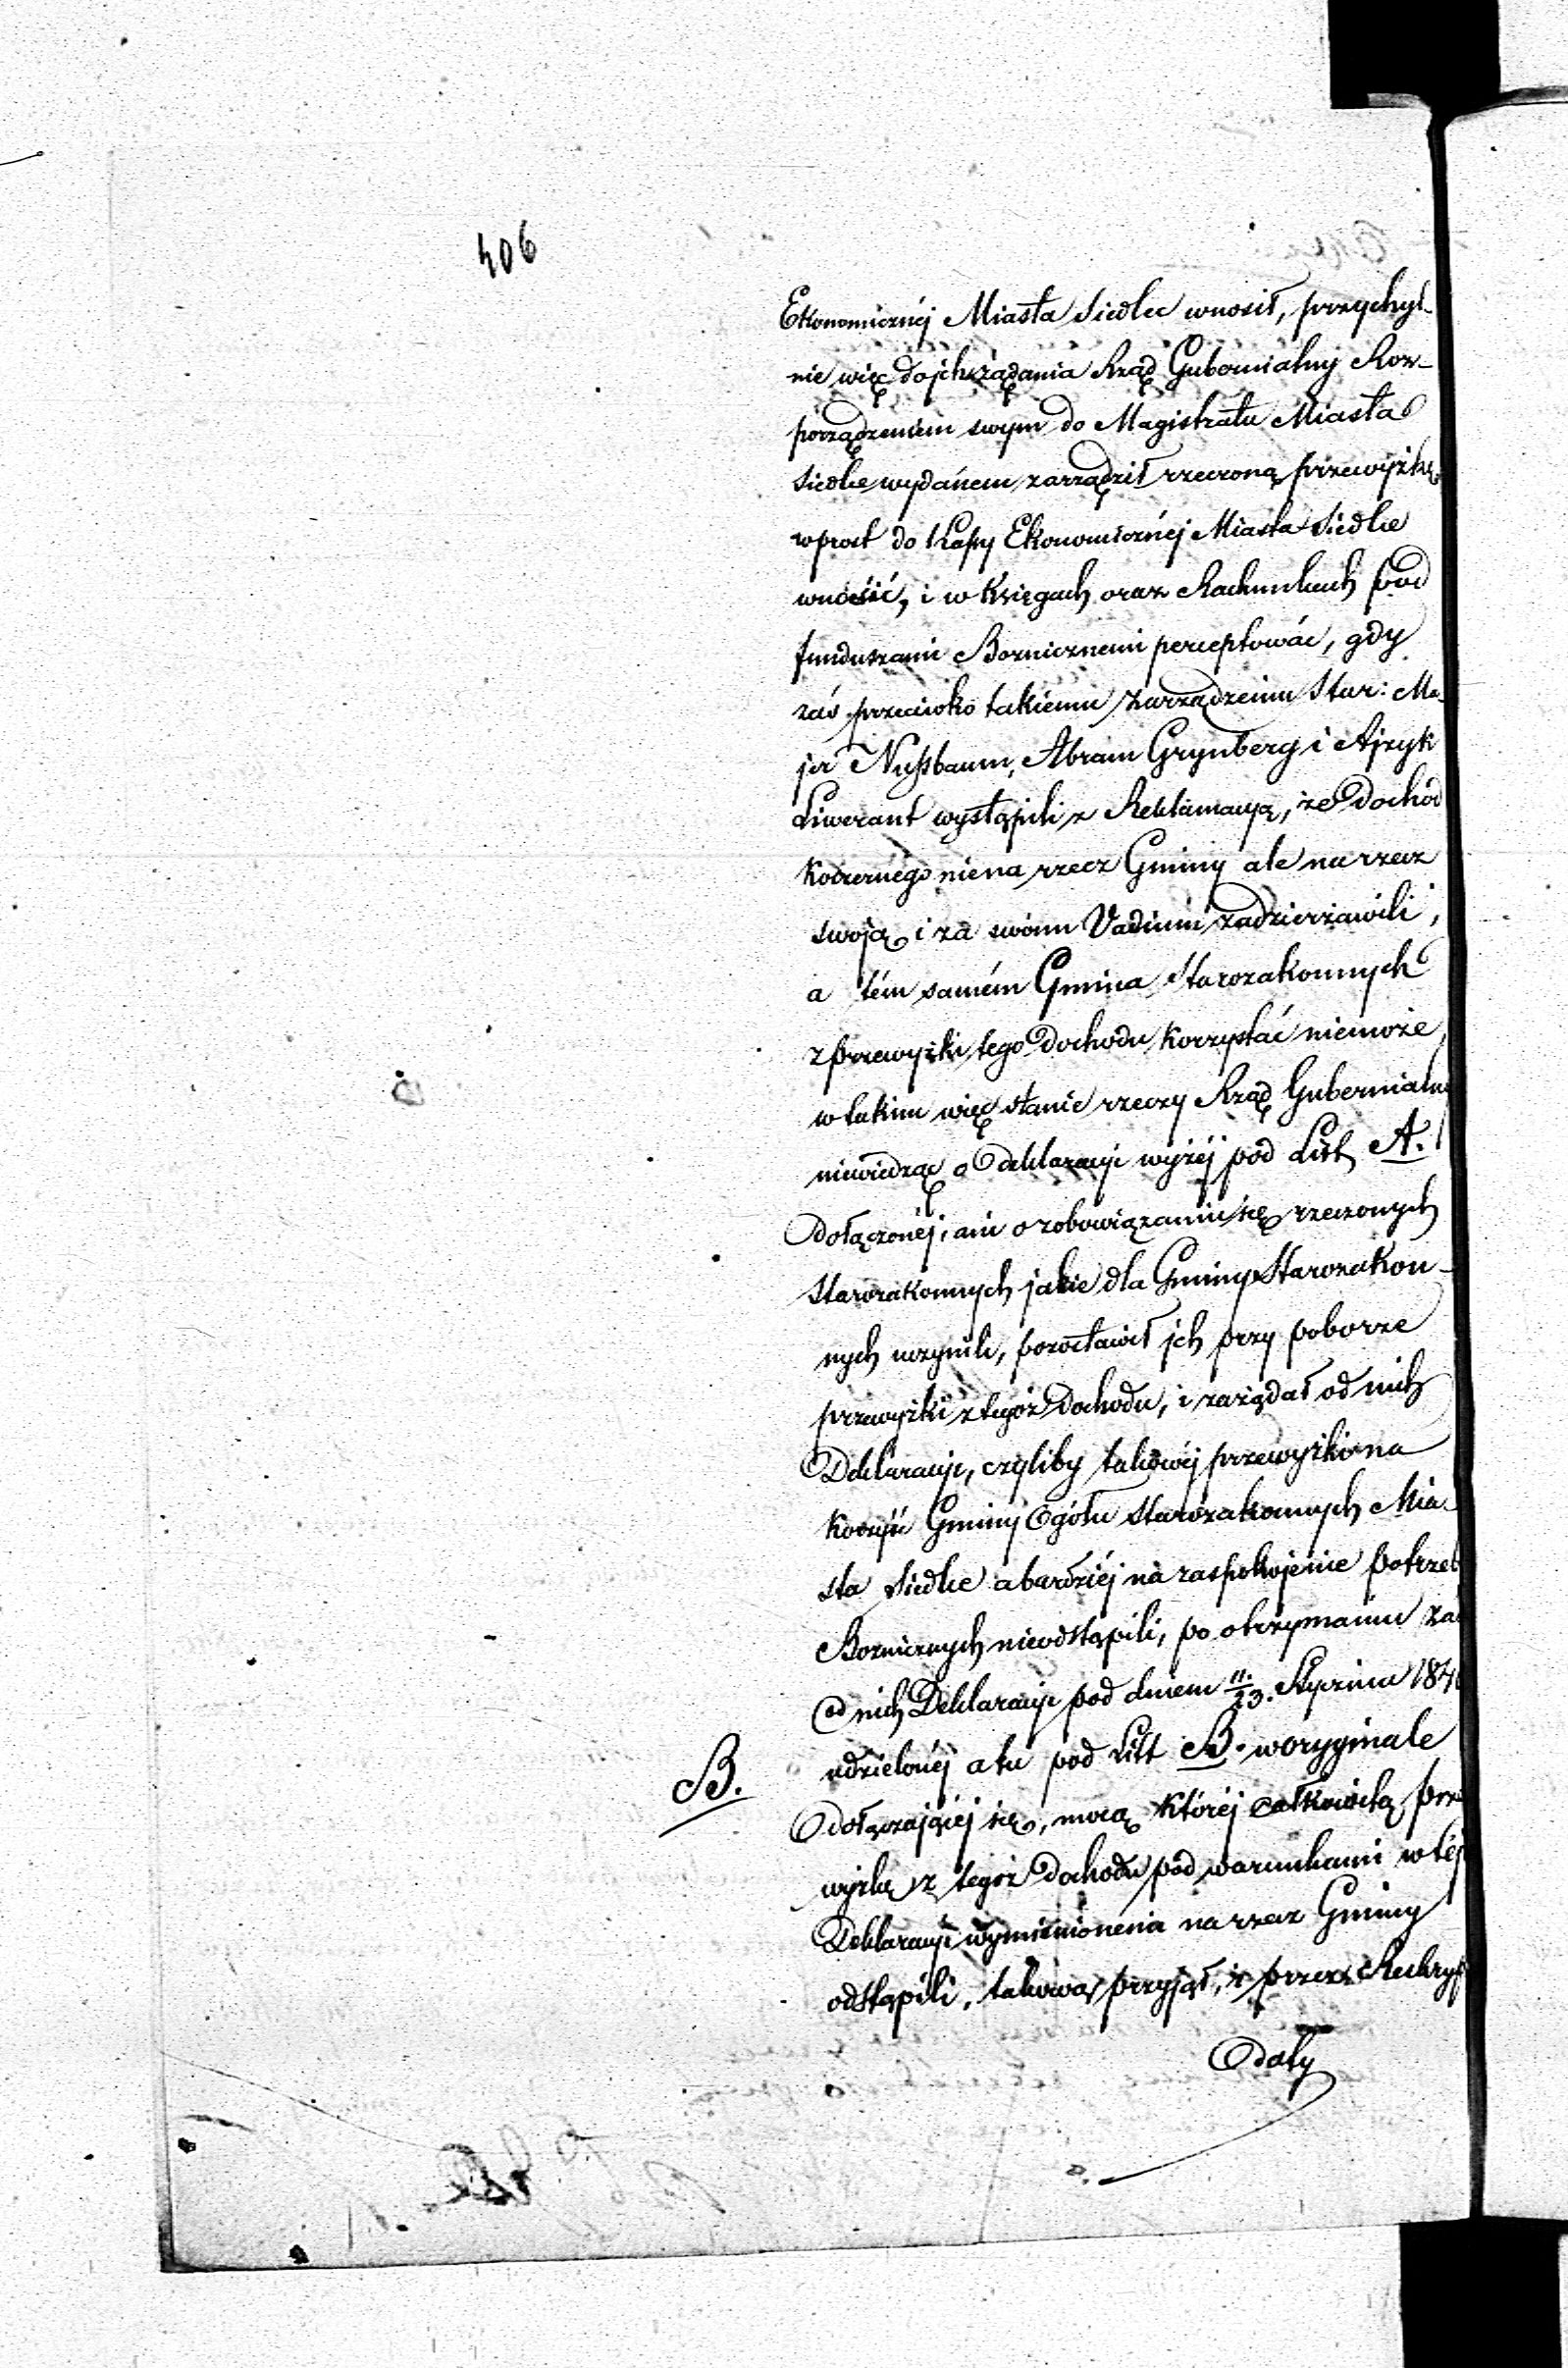 406
Ekonomicznéj Miasta Siedlec wnosił, przychyl-
nie więc do jch żądania Rząd Gubernialny Roz-
porządzeniem swym do Magistratu Miasta
Siedlce wydanem zarządził rzeczoną przewyżkę
wprost do Kassy Ekonomicznéj Miasta Siedlce
wnosić, i w Księgach oraz Rachunkach pod
funduszami Boznicznemi perceptować, gdy
zaś przeciwko takiemu zarządzeniu Star: Ma-
jer Nussbaum, Abram Grynberg i Ajzyk
Liwerant wystąpili z Reklamacyą, że dochód
Koszernego niena rzecz Gminy ale na rzecz
swoją i za swoim Vadium zadzierżawili,
a tém samém Gmina Starozakonnych
z przewyżki tego dochodu korzystać niemoże,
w takim więc stanie rzeczy Rząd Gubernialny
niewiedząc o deklaracyi wyżéj pod Litt A.
dołączonéj, ani o zobowiązaniu się rzeczonych
Starozakonnych jakie dla Gminy Starozakon-
nych uczynili, pozostawił jch przy poborze
przewyżki z tegoż dochodu, i zażądał od nich
Deklaracyi, czyliby takowéj przewyżki na
Korzyść Gminy Ogółu Starozakonnych Mia-
sta Siedlce a bardziéj na zaspokojenie potrzeb
Bozniczych nieodstąpili, po otrzymaniu zaś
od nich Deklaracyi pod dniem 11./23. Stycznia 184
udzielonéj a tu pod Litt B. w oryginale
B.
dołączającéj się, mocą któréj całkowitą prze
wyżkę z tegoż dochodu pod warunkami w téj
Deklaracyi wymienionemi na rzecz Gminy
odstąpili, takową przyjął, i przez Reskryp
Daty